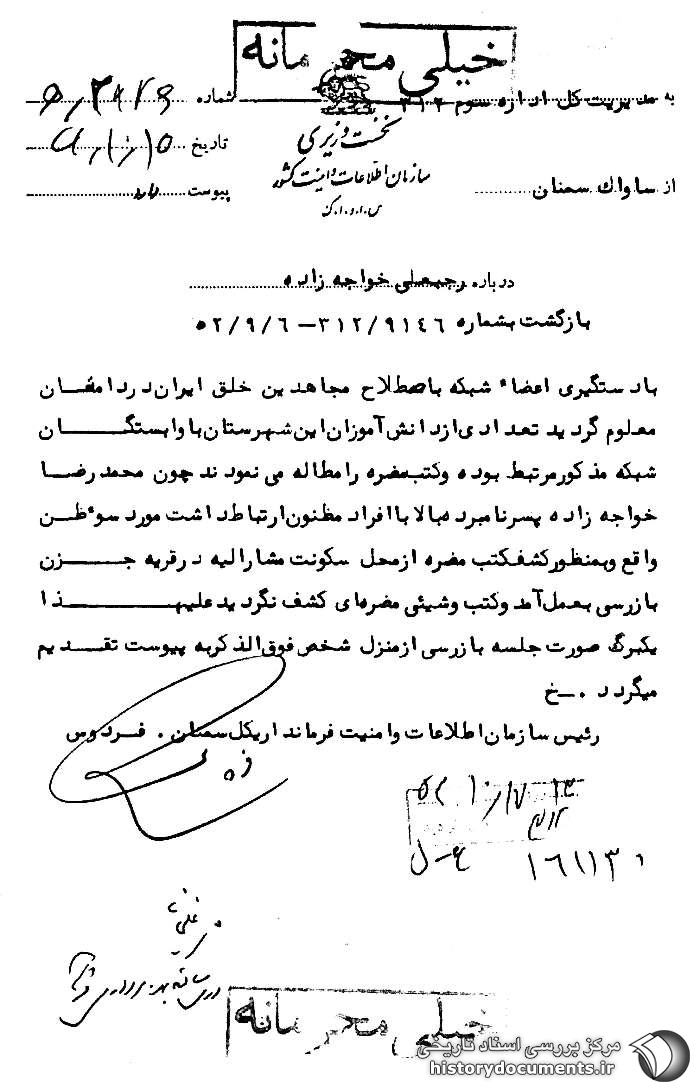 خیلی محرمانه
به مدیریت کل اداره سوم ۳۱۲
شماره
نخست وزیری
تاریخ
سازمان اطلاعات و امنیت کشور
از ساواك سمنان
س.ا.و.ا.ک
پیوست دارد
درباره رجبعلی خواجه زاده
بازگشت بشماره ۳۱۲/۹۱٤٦ – ۵۲/۹/۶
بادستگیری اعضاء شبکه باصطلاح مجاهدین خلق ایران در دامغان
معلوم گردید تعدادی از دانش آموزان این شهرستان با وابستگان
شبکه مذکور مرتبط بوده و کتب مضره را مطاله می نمودند چون محمدرضا
خواجه زاده پسر نامبرده بالا با افراد مظنون ارتباط داشت مورد سوءظن
واقع و بمنظور کشف کتب مضره از محل سکونت مشارالیه در قریه جزن
بازرسی بعمل آمد و کتب وشیئی مضره‌ای کشف نگردید علیهذا
یکبرگ صورت جلسه بازرسی از منزل شخص فوق الذکر به پیوست تقدیم
میگردد ۰-خ
رئیس سازمان اطلاعات و امنیت فرمانداریکل سمنان . فردوس
۳۱۲
۱۶۱۱۳۰
خیلی محرمانه
مرکز بررسی اسناد تاریخی
historydocuments.ir